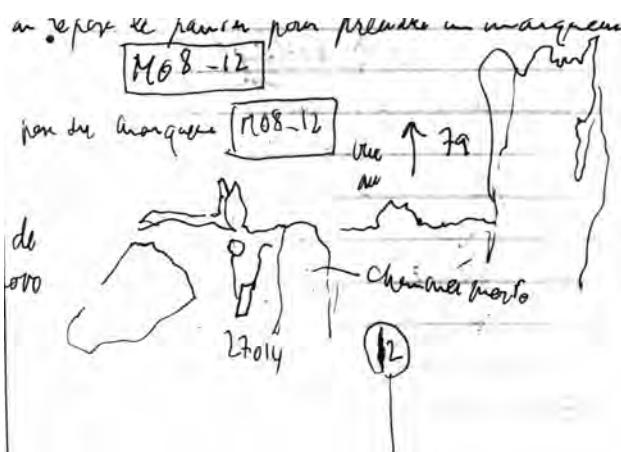 on repose le panier pour prendre un marqueur
M08-12
pose du marqueur M08-12
vue
79
de
cheminée morte
27014
12